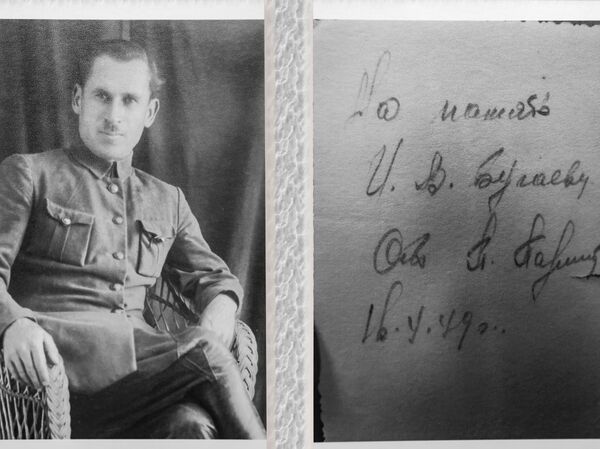 На память
И. В. Бугаеву
От П.
16.4.49 г.